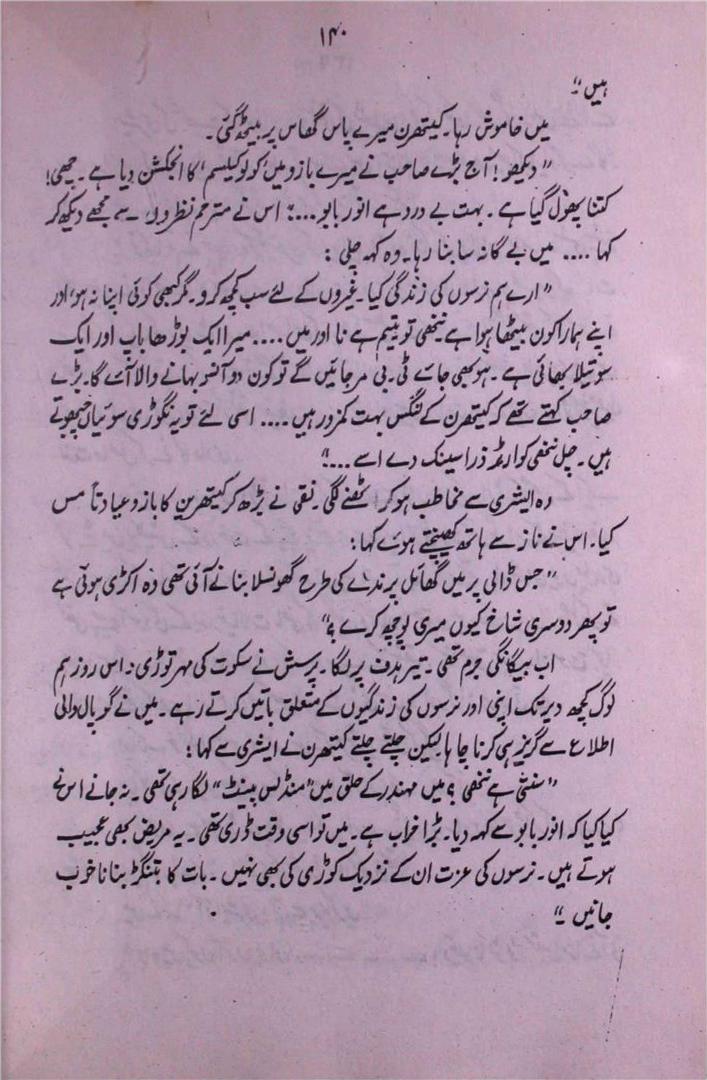 ۱۴۰
ہیں“
میں خاموش رہا۔ کیتھرن میرے پاس گھاس پر بیٹھ گئی۔
”دیکھو! آج بڑے صاحب نے میرے بازو میں ’کولوکیلسم‘ کا انجکشن دیا ہے۔ چھی!
کتنا پھول گیا ہے۔ بہت بے درد ہے انور بابو....“ اس نے مترحم نظروں سے مجھے دیکھ کر
کہا .... میں بے گانہ سا بنا رہا۔ وہ کہہ چلی :
”ارے ہم نرسوں کی زندگی کیا۔ غیروں کے لئے سب کچھ کرو۔ مگر کبھی کوئی اپنا نہ ہو! اور
اپنے ہمارا کون بیٹھا ہوا ہے ننھی تو یتیم ہے نا اور میں .... میرا ایک بوڑھا باپ اور ایک
سوتیلا بھائی ہے۔ ہو بھی جائے ٹی۔ بی مر جائیں گے تو کون دو آنسو بہانے والا آئے گا۔ بڑے
صاحب کہتے تھے کہ کیتھرن کے لنگس بہت کمزور ہیں .... اسی لئے تو یہ نگوڑی سوئیاں چبھوتے
ہیں۔ چل ننھی کوارٹر ذرا سینک دے اسے ....“
وہ ایشری سے مخاطب ہو کر اٹھنے لگی۔ نقی نے بڑھ کر کیتھرین کا بازو عیادتاً مس
کیا۔ اس نے ناز سے ہاتھ کھینچتے ہوئے کہا :
”جس ڈالی پر میں گھائل پرندے کی طرح گھونسلا بنانے آئی تھی وہ اکڑی ہوئی ہے
تو پھر دوسری شاخ کیوں میری پوچھ کرے؟“
اب بیگانگی جرم تھی۔ تیر ہدف پر لگا۔ پرسش نے سکوت کی مہر توڑی۔ اس روز ہم
لوگ کچھ دیر تک اپنی اور نرسوں کی زندگیوں کے متعلق باتیں کرتے رہے۔ میں نے گوپال والی
اطلاع سے گریز ہی کرنا چاہا لیکن چلتے چلتے کیتھرن نے ایشری سے کہا :
”سنتی ہے ننھی؟ میں مہندر کے حلق میں ”منڈلس پینٹ“ لگا رہی تھی۔ نہ جانے اس نے
کیا کیا کہ انور بابو سے کہہ دیا۔ بڑا خراب ہے۔ میں تو اسی وقت ڈری تھی۔ یہ مریض بھی عجیب
ہوتے ہیں۔ نرسوں کی عزت ان کے نزدیک کوڑی کی بھی نہیں۔ بات کا بتنگڑ بنانا خوب
جانیں۔“